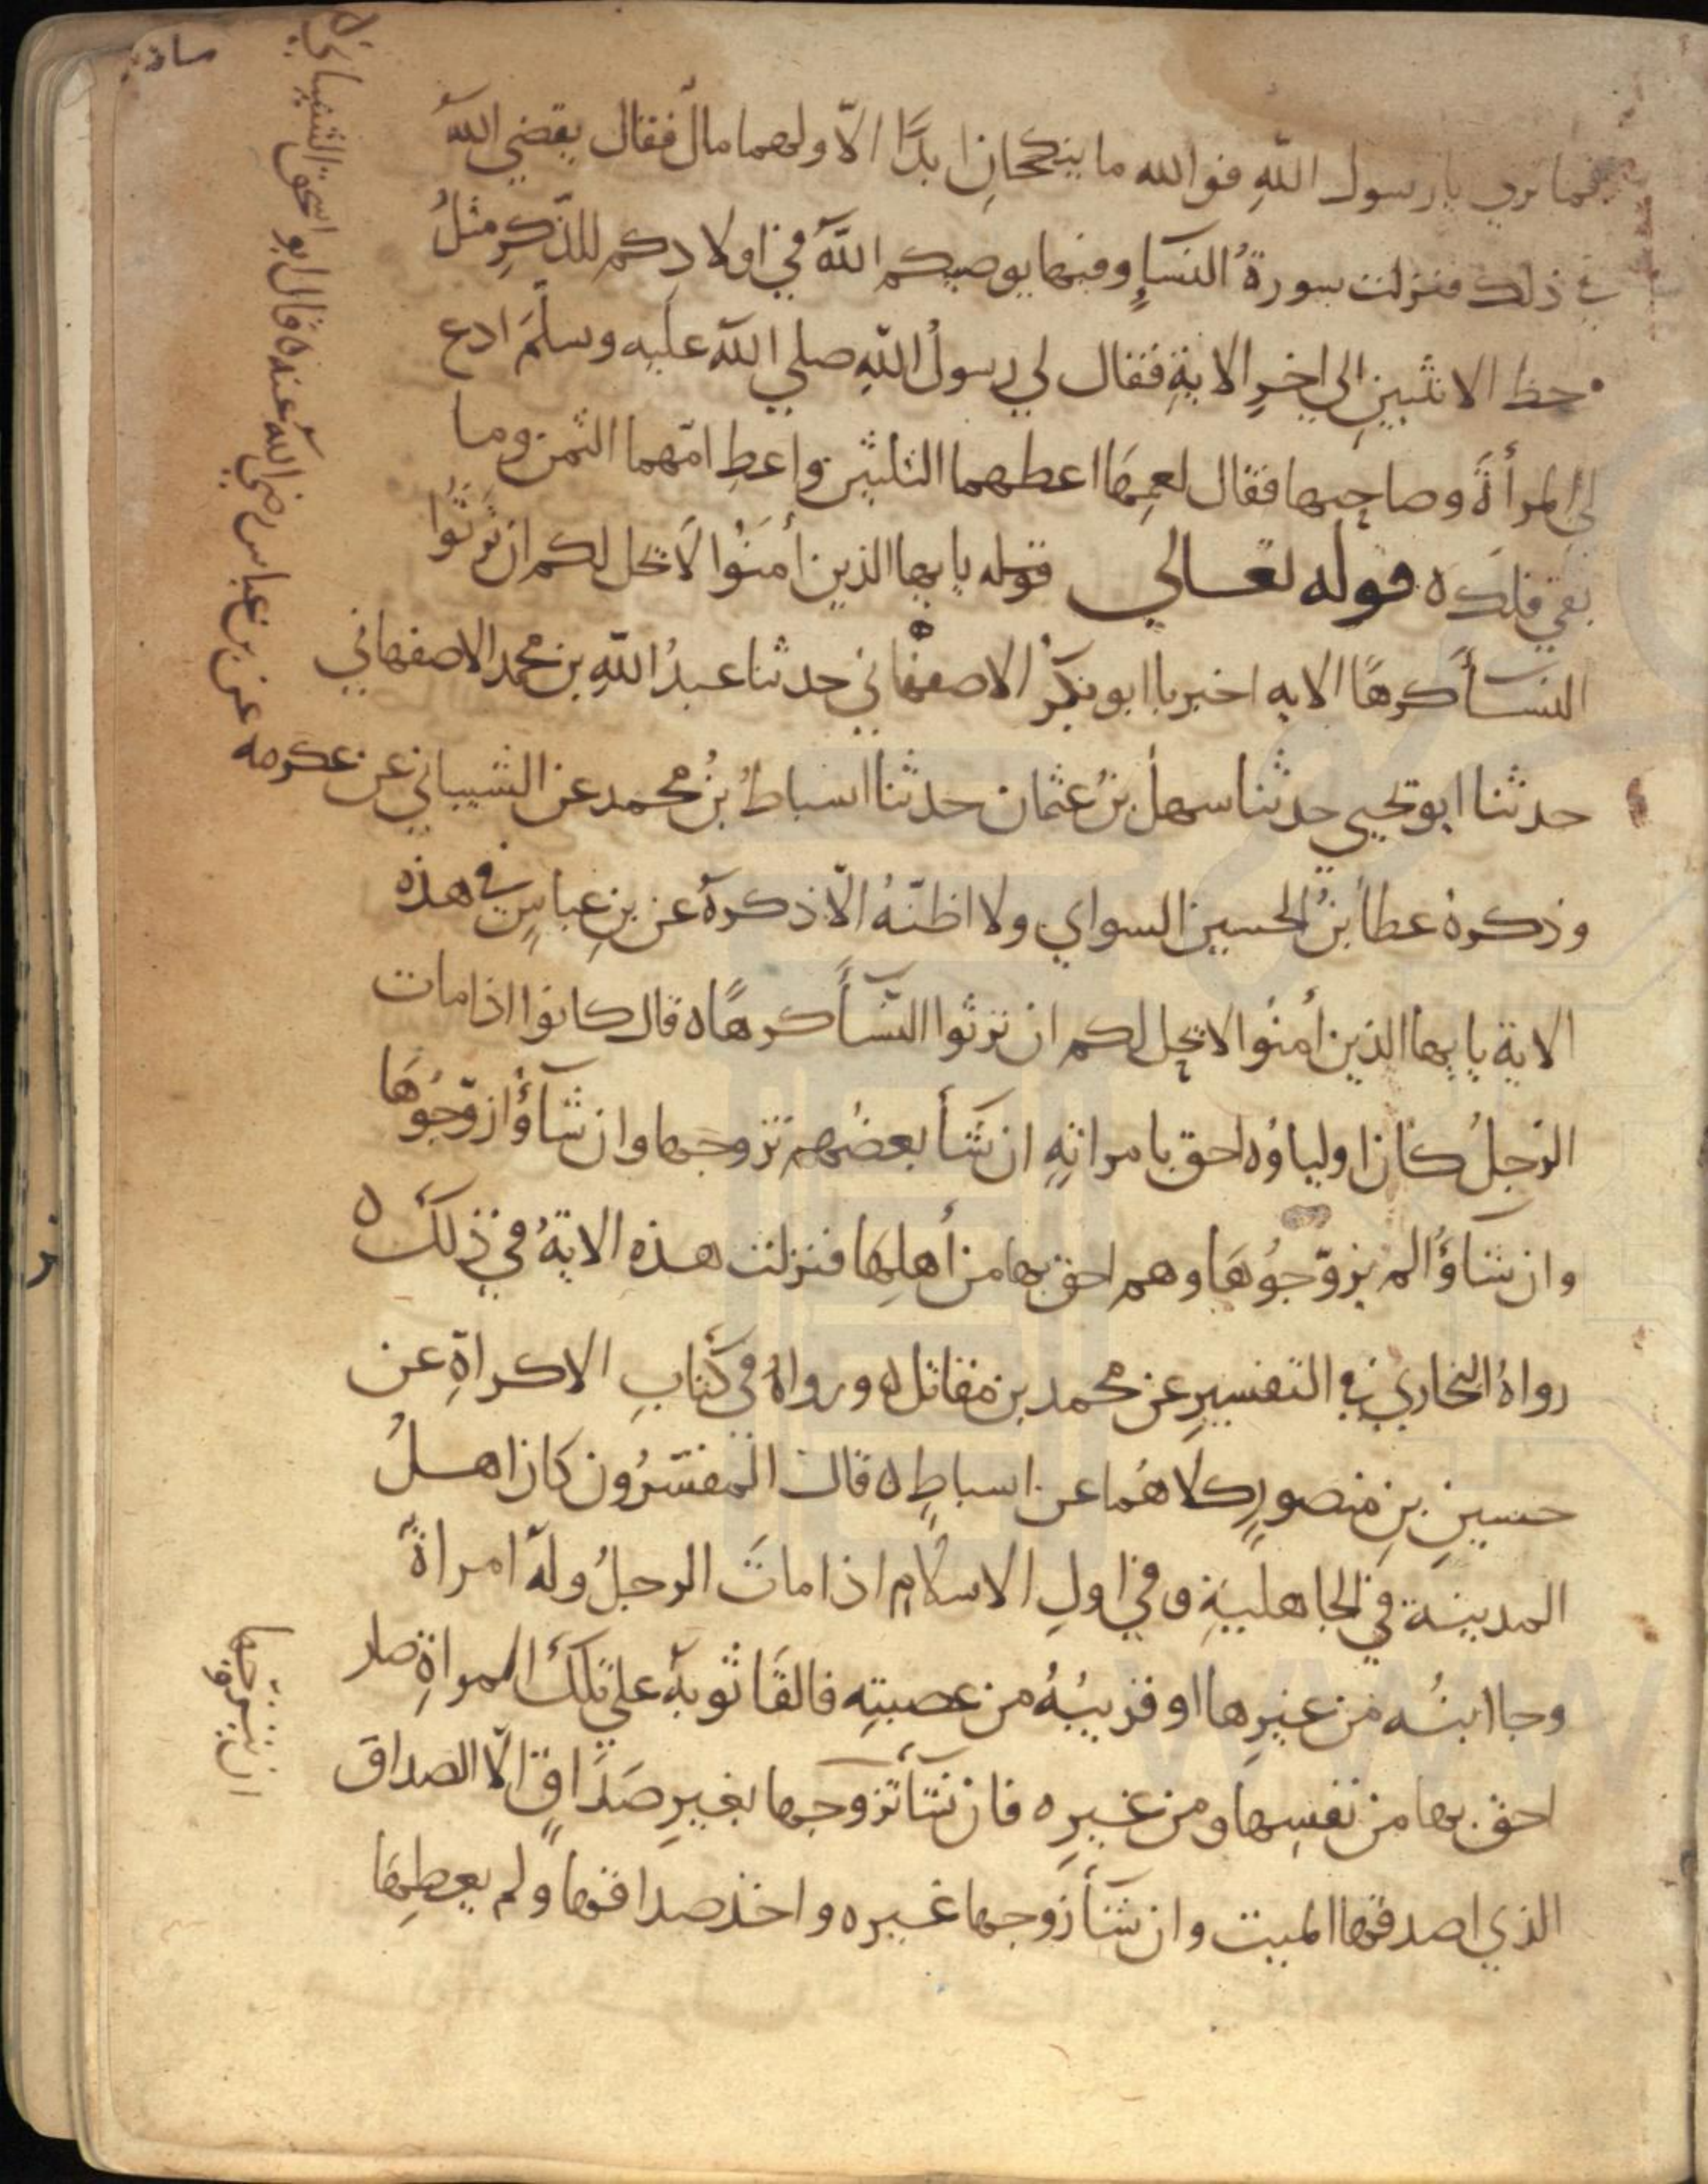 فما تري يا رسول اللهِ فوالله ما ينكحانِ ابدًا الّا ولهما مالٌ فقال يقضي اللهُ
في ذلك فنزلت سورةُ النسآءِ وفيها يوصيكم اللهُ في اولادِكم للذّكرِ مثلُ
حظ الانثيينِ الي اخرِ الايةِ فقال لي رسولُ اللهِ صلي الله عليه وسلّمَ ادع
لي المرأةَ وصاحبها فقال لعمِهَا اعطهما الثلثين واعطِ امّهما الثمن وما
بقي فلكَ ه قوله تعالي قوله يا يها الذين أمَنُوا لَا يحل لكم ان تَرثُوا
النسآ كرهًا الايه اخبرنا ابو بكرٍ الاصفهاني حدثنا عبدُ اللهِ بن محمد الاصفهاني
حدثنا ابو يحيي حدثنا سهلُ بنُ عثمان حدثنا اسباطُ بنُ محمد عن الشيباني عن عكرمه
عن بن عباس رضي اللهُ عنه ه قال ابو اسحق الشيباني ه
وذكرهُ عطا بنُ الحسين السواي ولا اظنّهُ الّا ذكرهُ عن بنِ عباسٍ في هذه
الاية يا يها الذين أمنُوا لا يحل لكم ان ترثوا النّسآ كرهًا ه قال كانوا اذا مات
الرّجلُ كان اولياؤه احق بامراتهِ ان شآ بعضُهم تزوجها وان شآؤُا زوّجُوهَا
وان شآؤُا لم يزوّجُوهَا وهم احق بها من أهلِهَا فنزلت هذه الايةُ في ذلكَ ه
رواهُ البخاري في التفسيرِ عن محمد بن مقاتل ه ورواهُ في كتابِ الاكراهِ عن
حسينِ بنِ منصورٍ كلاهُما عن اسباطٍ ه قال المفسّرُون كان اهلُ
المدينة في الجاهليةِ وفي اولِ الاسلامِ اذا ماتَ الرجلُ ولهُ امراةٌ
وجا ابنُه من غيرِها او قريبُهُ من عصبتِه فالقَا ثوبهُ علي تلكَ المراةِ صار
احق بها من نفسِها ومن غيرِه فان شآ تزوجها بغيرِ صَدَاقٍ الّا الصداق
الذي اصدقها الميت وان شآ زوجها غيره واخذ صداقها ولم يعطِهَا